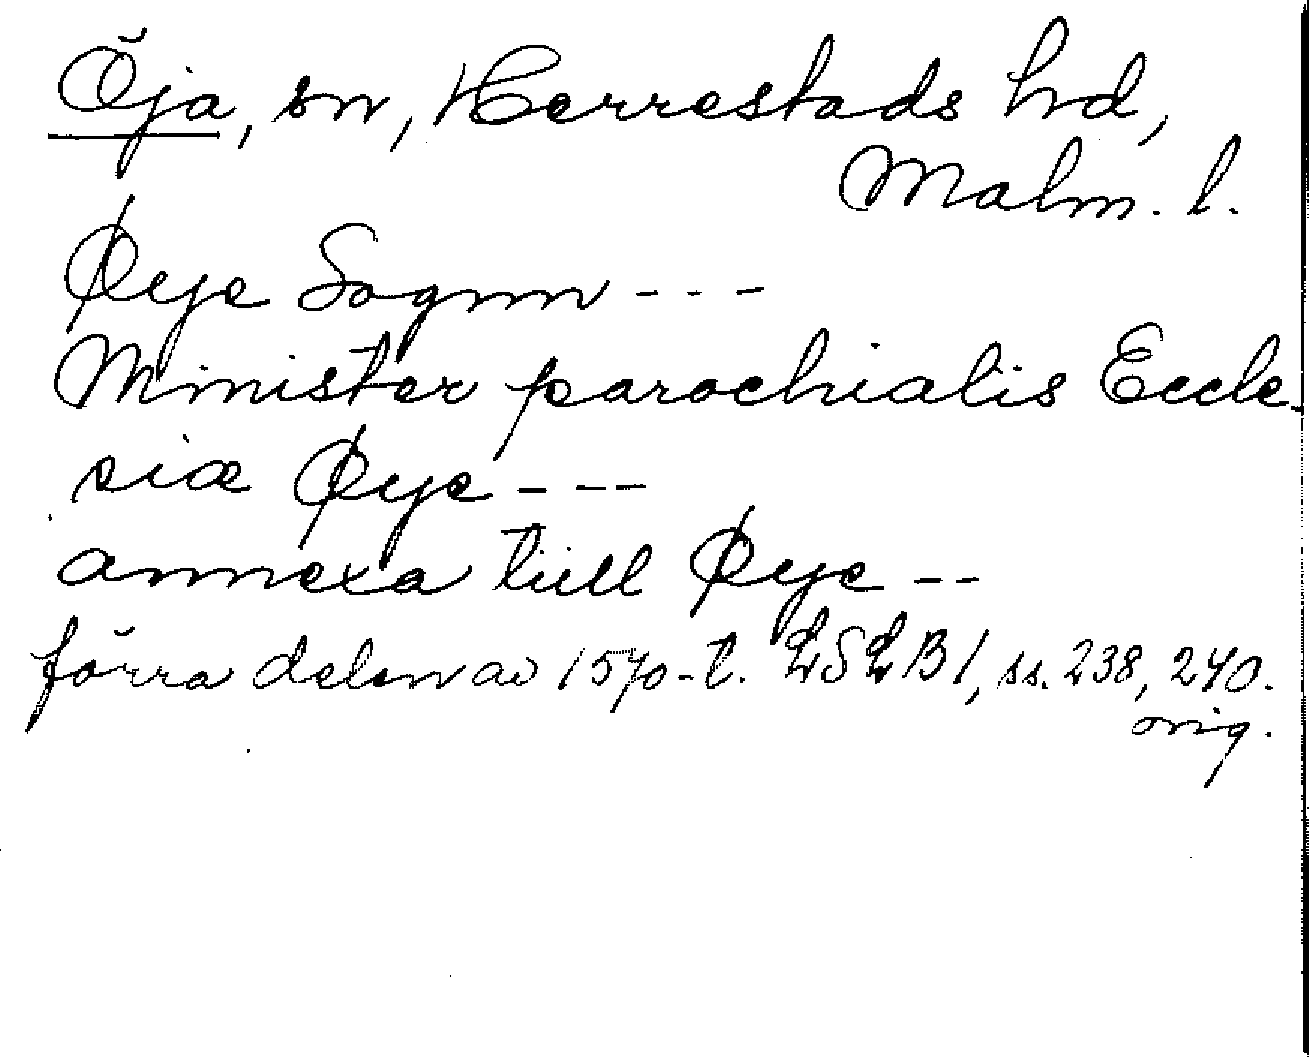 Öja, sn, Herrestads hd,
Malm. l.
Øye Sognn ---
Minister parochialis Eccle-
siæ Øye ---
annexa tiill Øye --
förra delen av 1570-t. LSLB 1, ss. 238, 240.
orig.